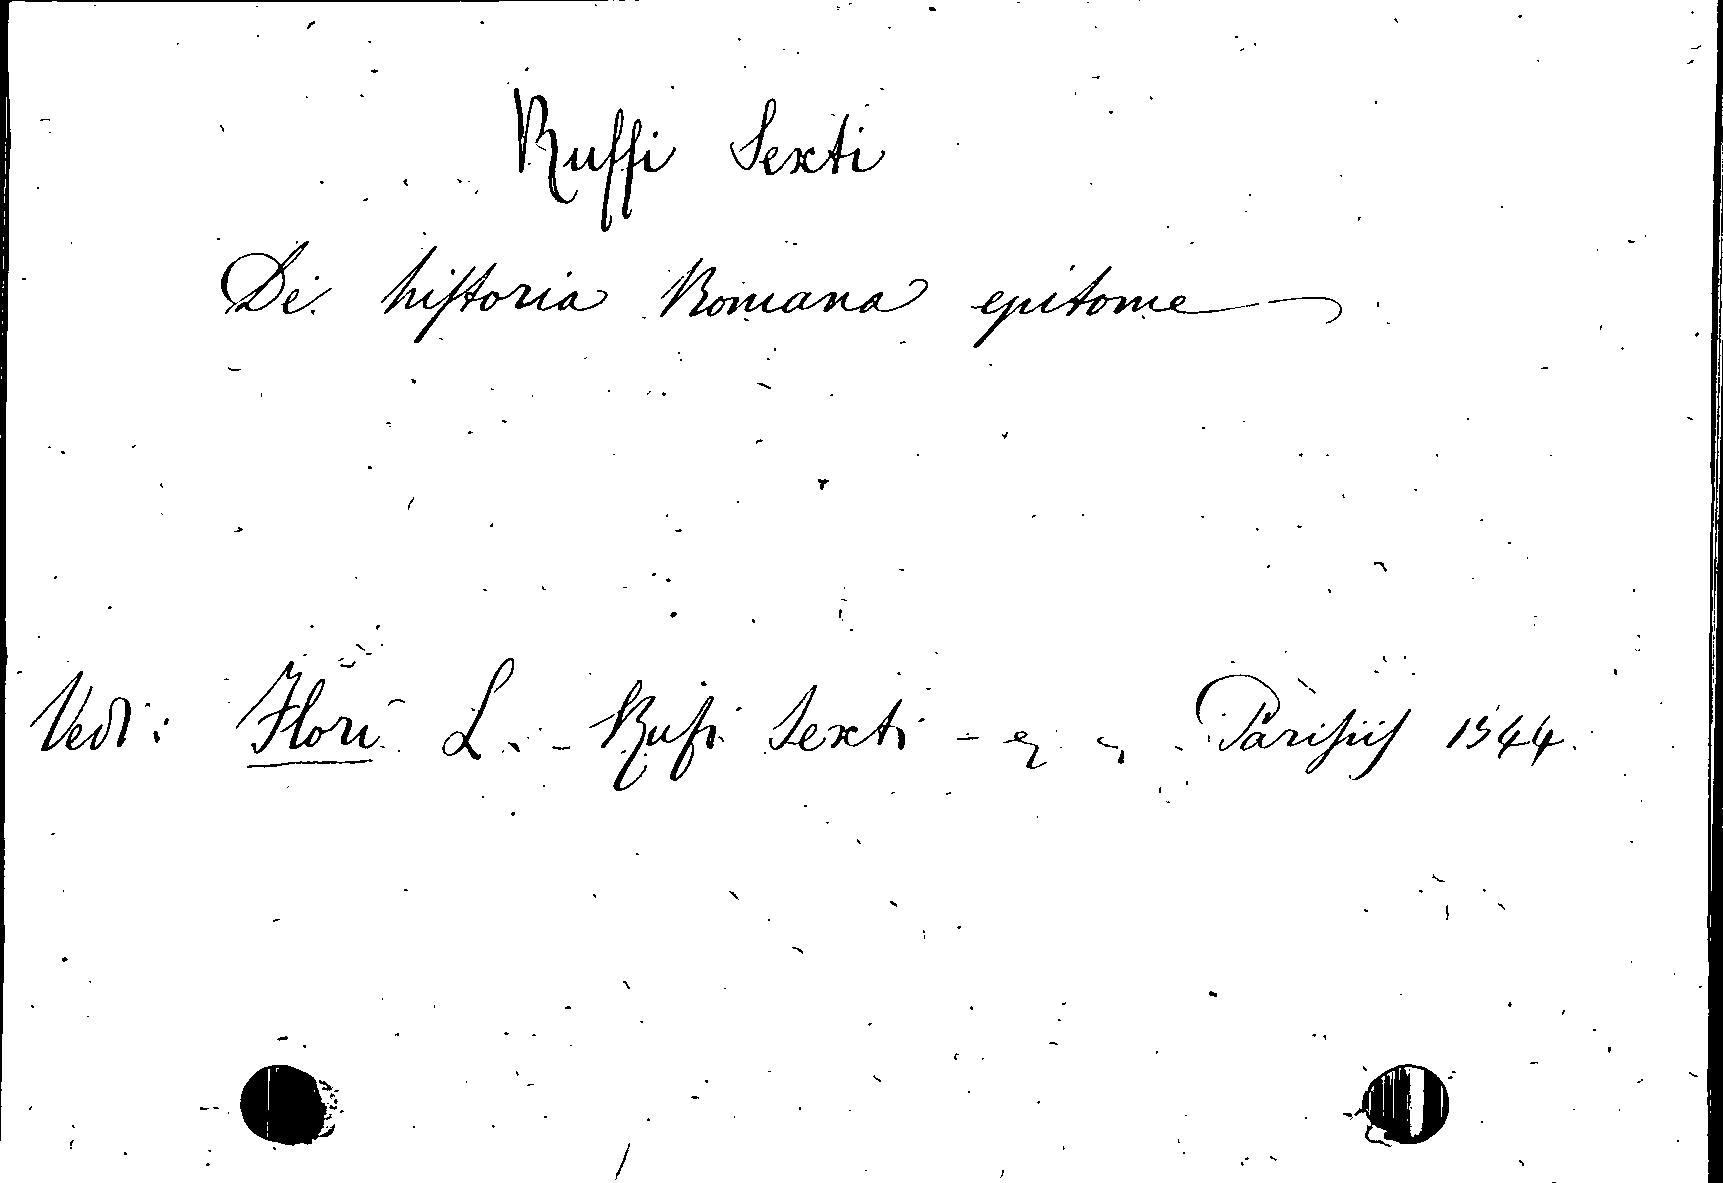 Ruffi Sexti
De historia Romana epitome
Vedi: Flori L. - Rufi Sexti - Parisiis 1544.